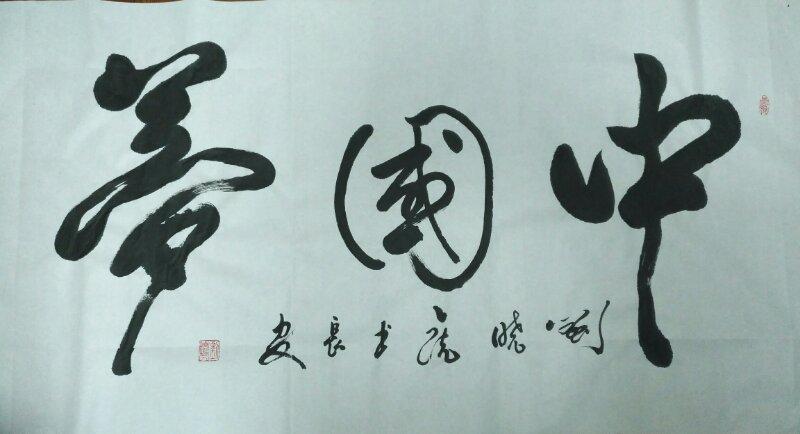 中國夢
劉曉虎书長安